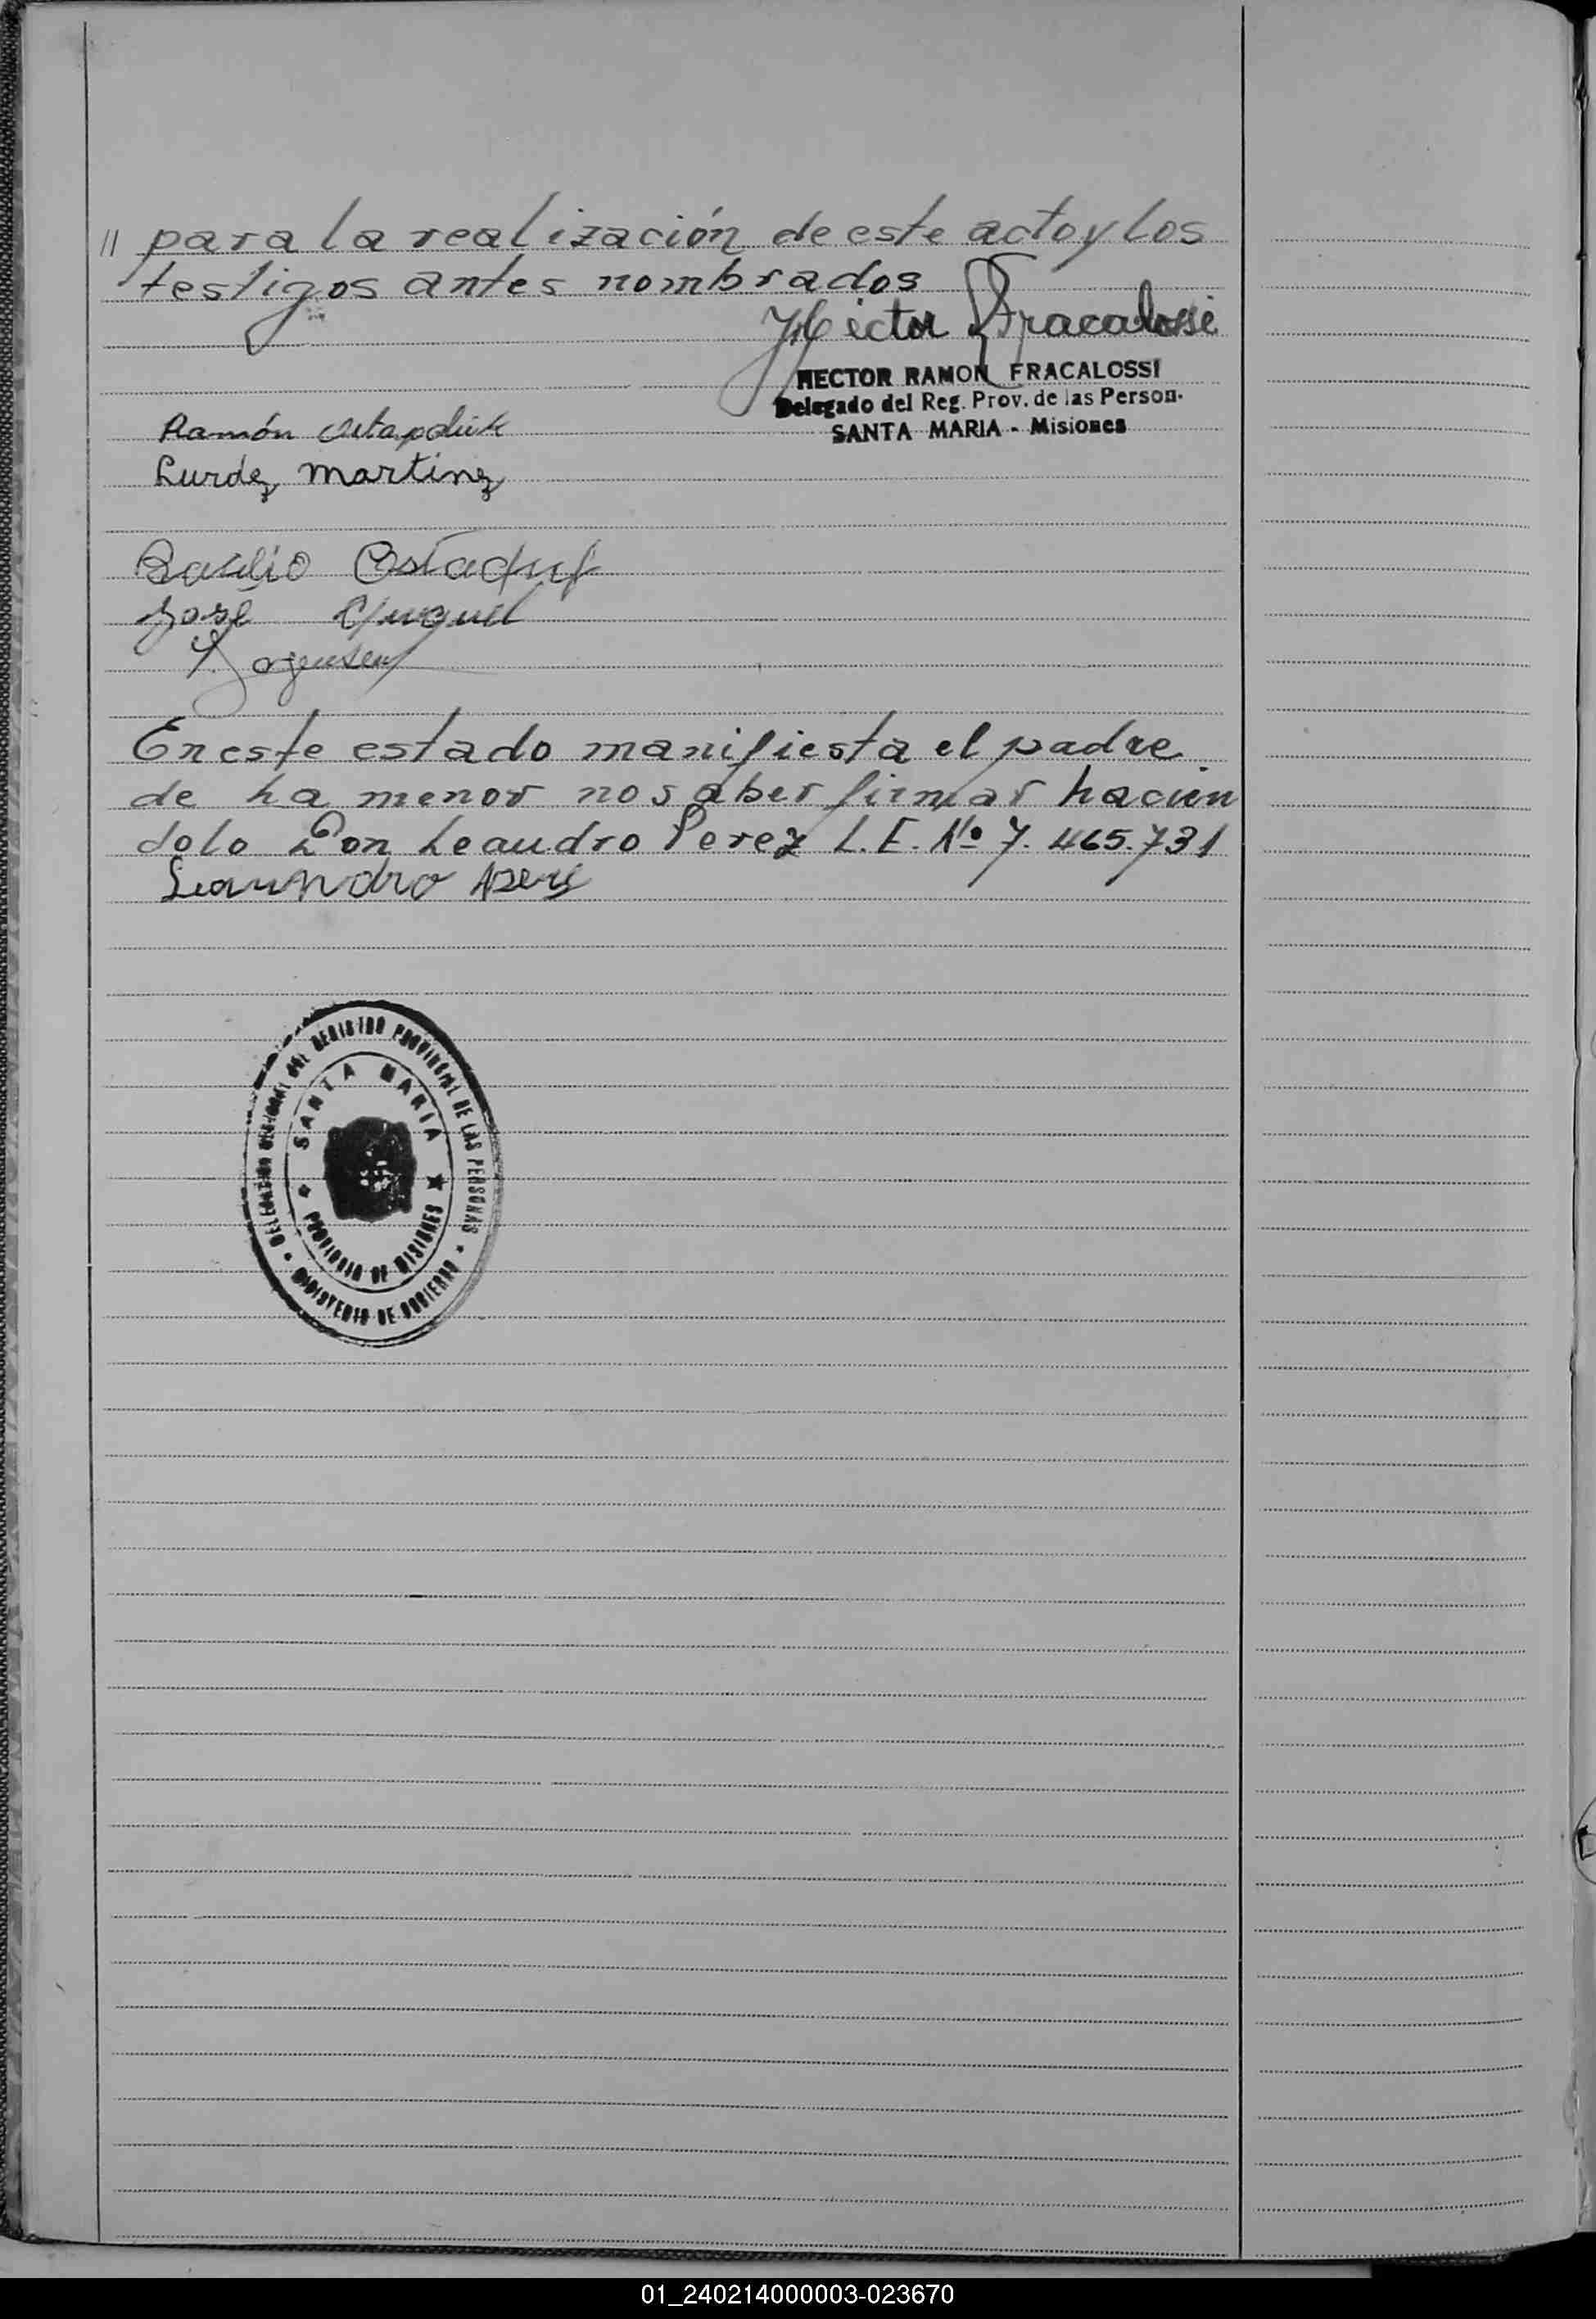 // para la realización de este acto y los
testigos antes nombrados
Hector R Fracalossi
HECTOR RAMON FRACALOSSI
Delegado del Reg. Prov. de las Person.
SANTA MARIA - Misiones
Ramón
Lurdez Martinez
Basilio
José
Jorgensen
En este estado manifiesta el padre
de la menor no saber firmar hacien
dolo Don Leandro Perez L.E. Nº 7.465.731
Leaundro
DELEGACION REGIONAL DEL REGISTRO PROVINCIAL DE LAS PERSONAS
SANTA MARIA
PROVINCIA DE MISIONES
MINISTERIO DE GOBIERNO
01_240214000003-023670